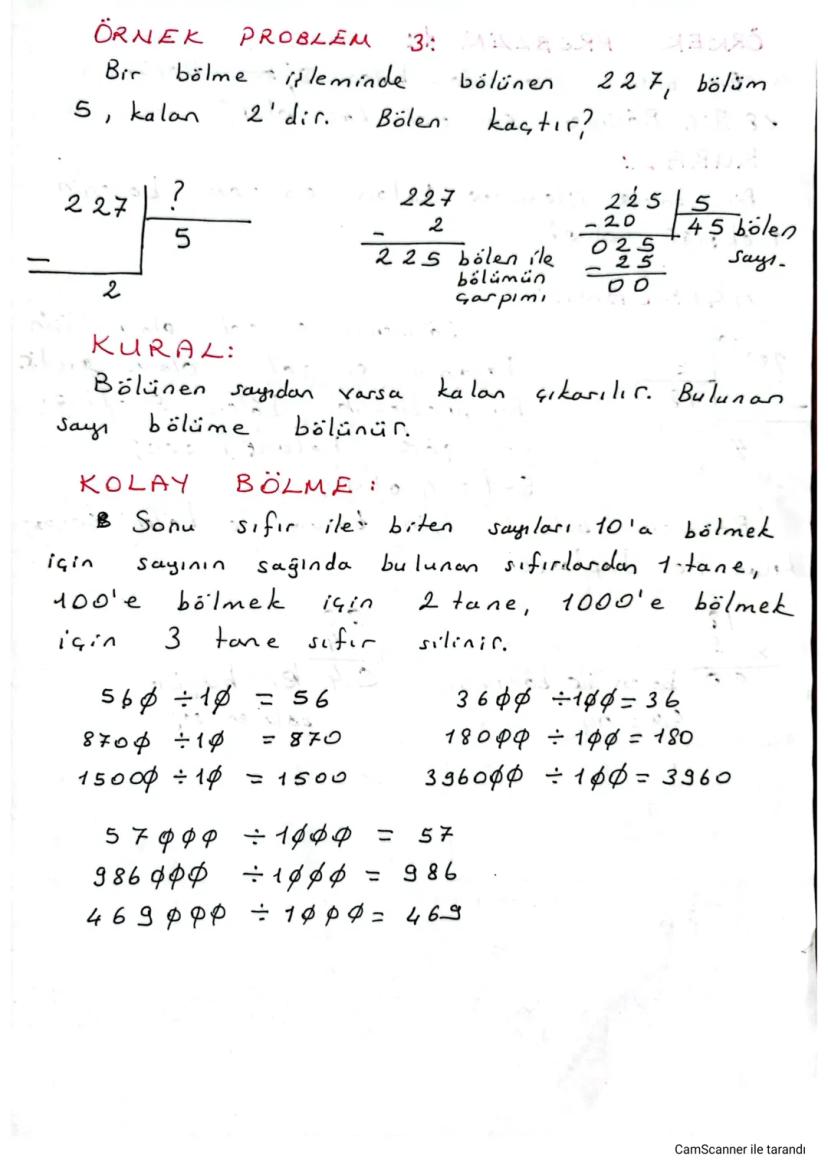 ÖRNEK PROBLEM 3:
Bir bölme işleminde bölünen 227, bölüm
5, kalan 2'dir. Bölen kaçtır?
227 ?
5
2
227
- 2
225 bölen ile
bölümün
çarpımı
225 5
- 20 45 bölen
025 sayı.
- 25
00
KURAL:
Bölünen sayıdan varsa kalan çıkarılır. Bulunan
sayı bölüme bölünür.
KOLAY BÖLME:
Sonu sıfır ile biten sayıları 10'a bölmek
için sayının sağında bulunan sıfırlardan 1 tane,
100'e bölmek için 2 tane, 1000'e bölmek
için 3 tane sıfır silinir.
560 ÷ 10 = 56
8700 ÷ 10 = 870
15000 ÷ 10 = 1500
3600 ÷ 100 = 36
18000 ÷ 100 = 180
396000 ÷ 100 = 3960
57000 ÷ 1000 = 57
986000 ÷ 1000 = 986
469000 ÷ 1000 = 469
CamScanner ile tarandı